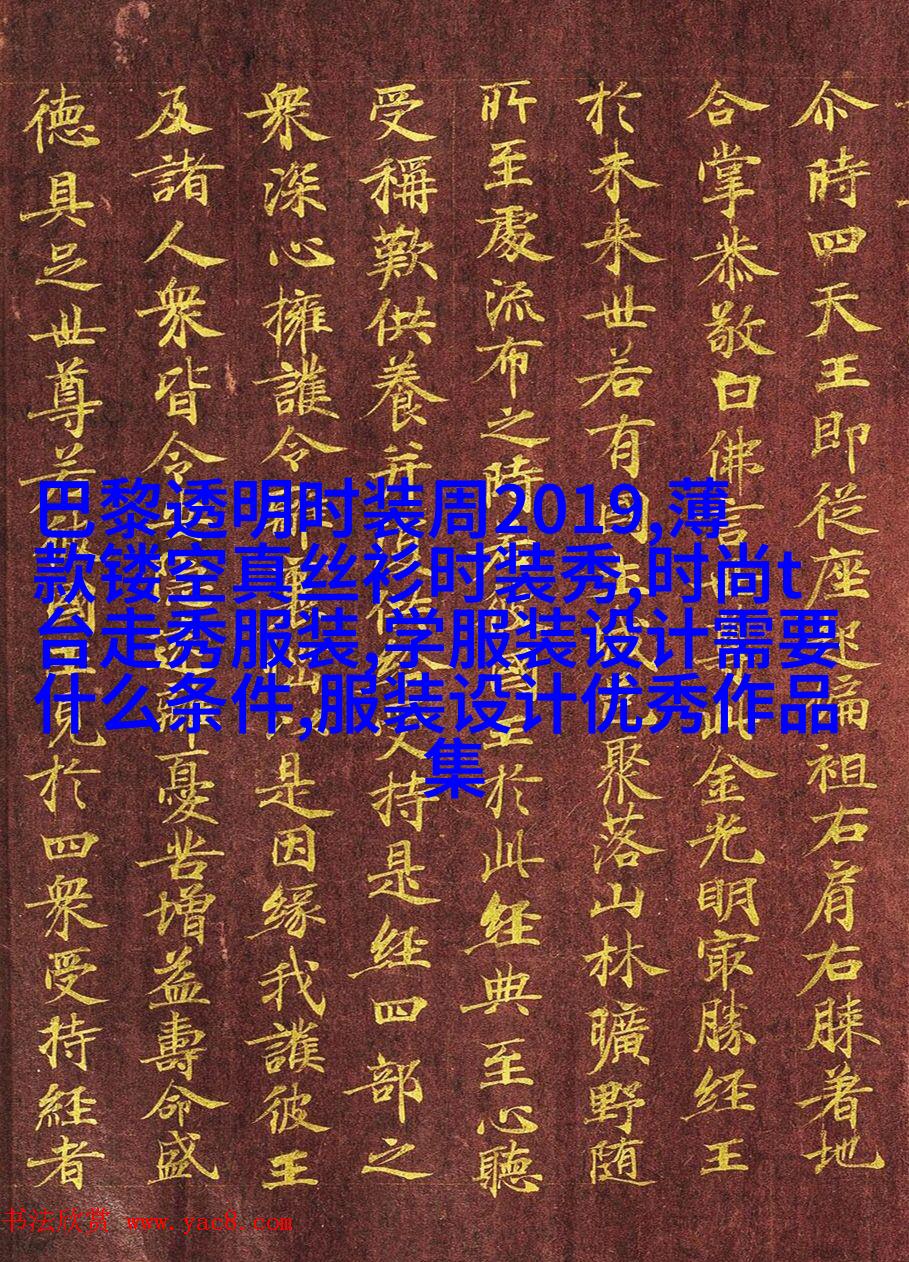 尒時四天王即從座起偏袒右肩右膝著地
合掌恭敬白佛言世尊此金光明冣勝經王
於未来世若有國土城邑聚落山林曠野随
所至處流布之時若彼國王於此經典至心聽
受稱歎供養并復供給受持是經四部之
衆深心擁護令離衰惱以是因緣我護彼王
及諸人衆皆令安隱遠離憂苦增益壽命威
德具足世尊若彼國王見於四衆受持經者
巴黎透明时装周2019,薄
款镂空真丝衫时装秀,时尚t
台走秀服装,学服装设计需要
什么条件,服装设计优秀作品
集
书法欣赏 www.yac8.com